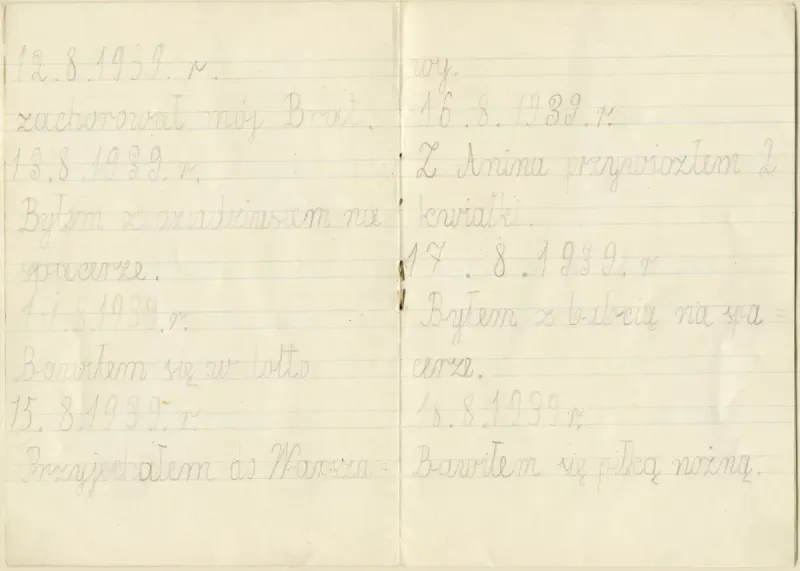 12.8.1939. r.
zachorował mój Brat.
13.8.1939. r.
Byłem z dziadziusiem na
spacerze.
14.8.1939. r.
Bawiłem się w lotto
15.8.1939. r.
Przyjechałem do Warsza-
wy.
16.8.1939. r.
Z Anina przywiozłem 2
kwiatki.
17.8.1939. r
Byłem z babcią na spa=
cerze.
18.8.1939 r.
Bawiłem się piłką nożną.